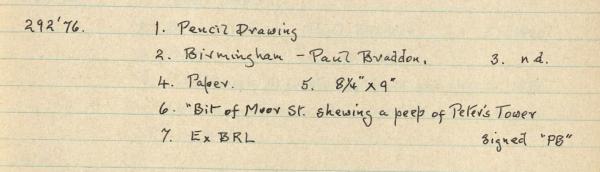 292'76. 1. Pencil Drawing
2. Birmingham - Paul Braddon. 3. n.d.
4. Paper. 5. 8¼" x 9"
6. "Bit of Moor St. shewing a peep of Peter's Tower
7. Ex BRL signed "PB"